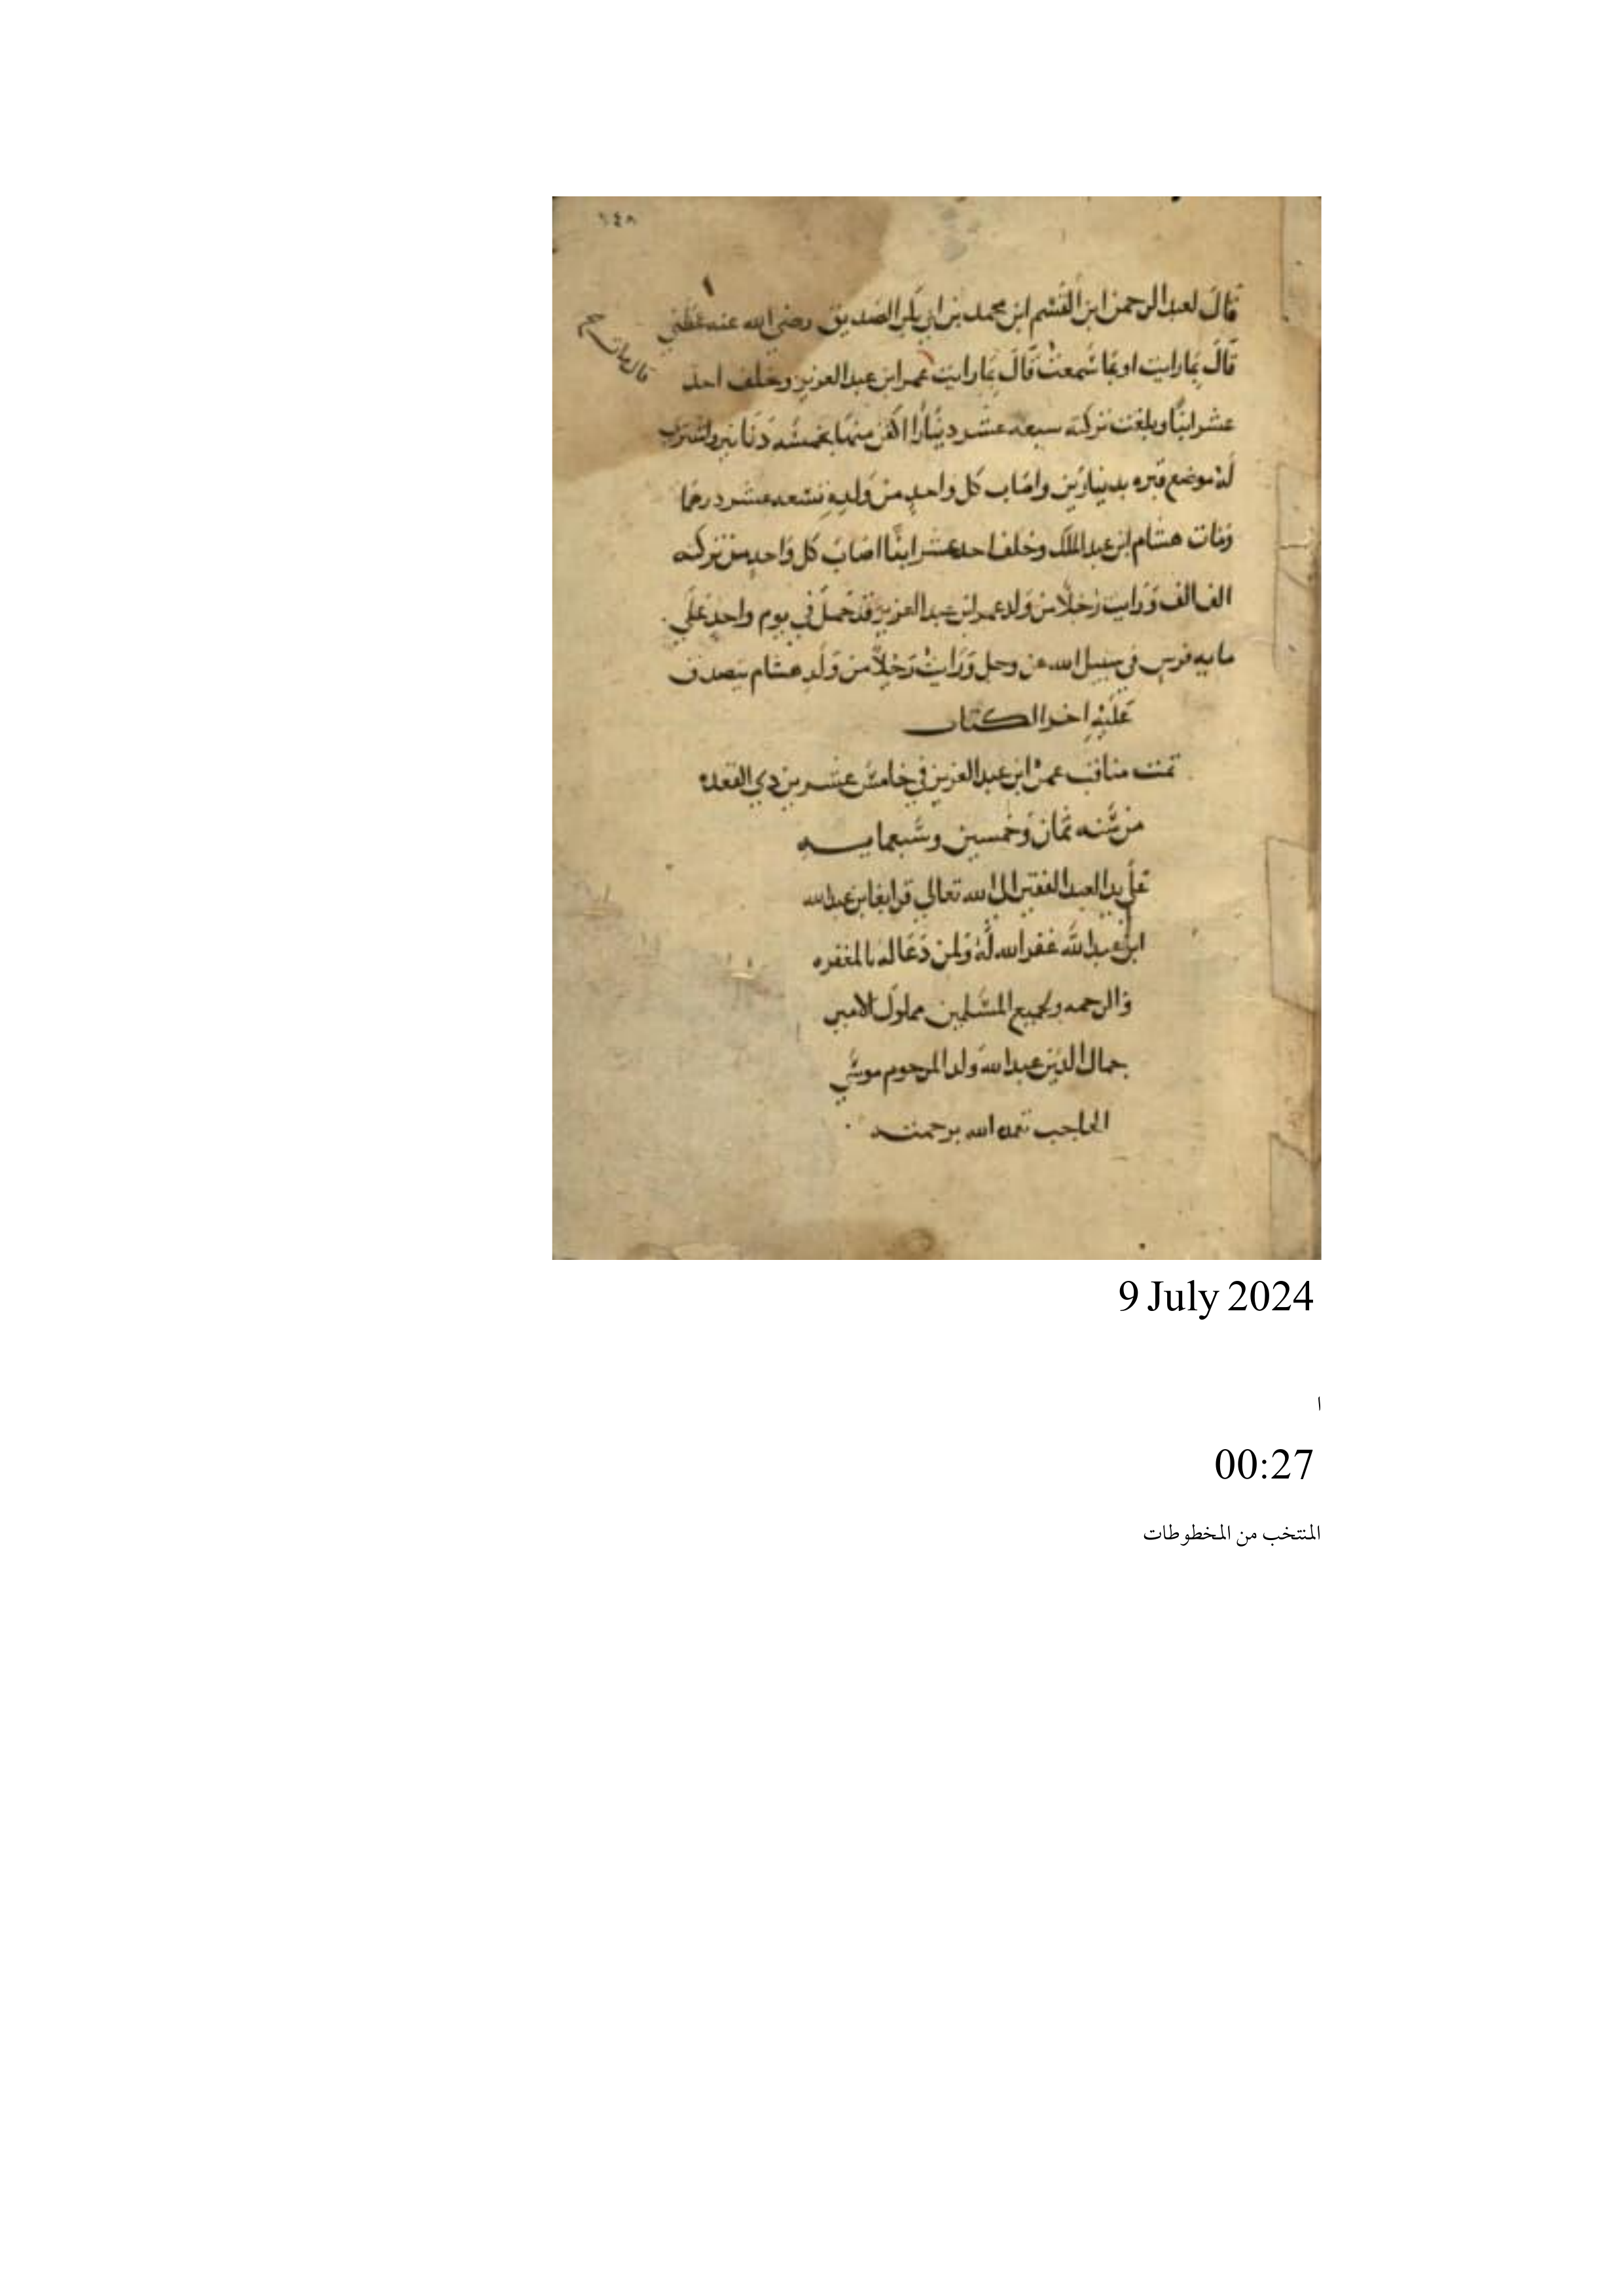 ١٤٨
قال لعبد الرحمن ابن القسم ابن محمد بن ابي بكر الصديق رضي الله عنه عظني
قال مات
قال بما رايت او بما سمعت قال بما رايت عمر ابن عبد العزيز وخلف احد
عشر ابنا وبلغت تركته سبعه عشر دينارا اكفن منها بخمسه دنانير واشتري
له موضع قبره بدينارين واصاب كل واحد من ولده تسعه عشر درهما
ومات هشام ابن عبد الملك وخلف احد عشر ابنا اصاب كل واحد من تركته
الف الف ورايت رجلا من ولد عمر ابن عبد العزيز قد حمل في يوم واحد علي
مايه فرس في سبيل الله عز وجل ورايت رجلا من ولد هشام يتصدق
عليه اخر الكتاب
تمت مناقب عمر ابن عبد العزيز في خامس عشرين ذي القعده
من سنه ثمان وخمسين وسبعمايه
علي يد العبد الفقير الي الله تعالي قرابغا ابن عبد الله
ابن عبد الله غفر الله له ولمن دعا له بالمغفره
والرحمه ولجميع المسلمين مملوك الامير
جمال الدين عبد الله ولد المرحوم موسي
الحاجب تغمده الله برحمته
9 July 2024
ا
00:27
المنتخب من المخطوطات